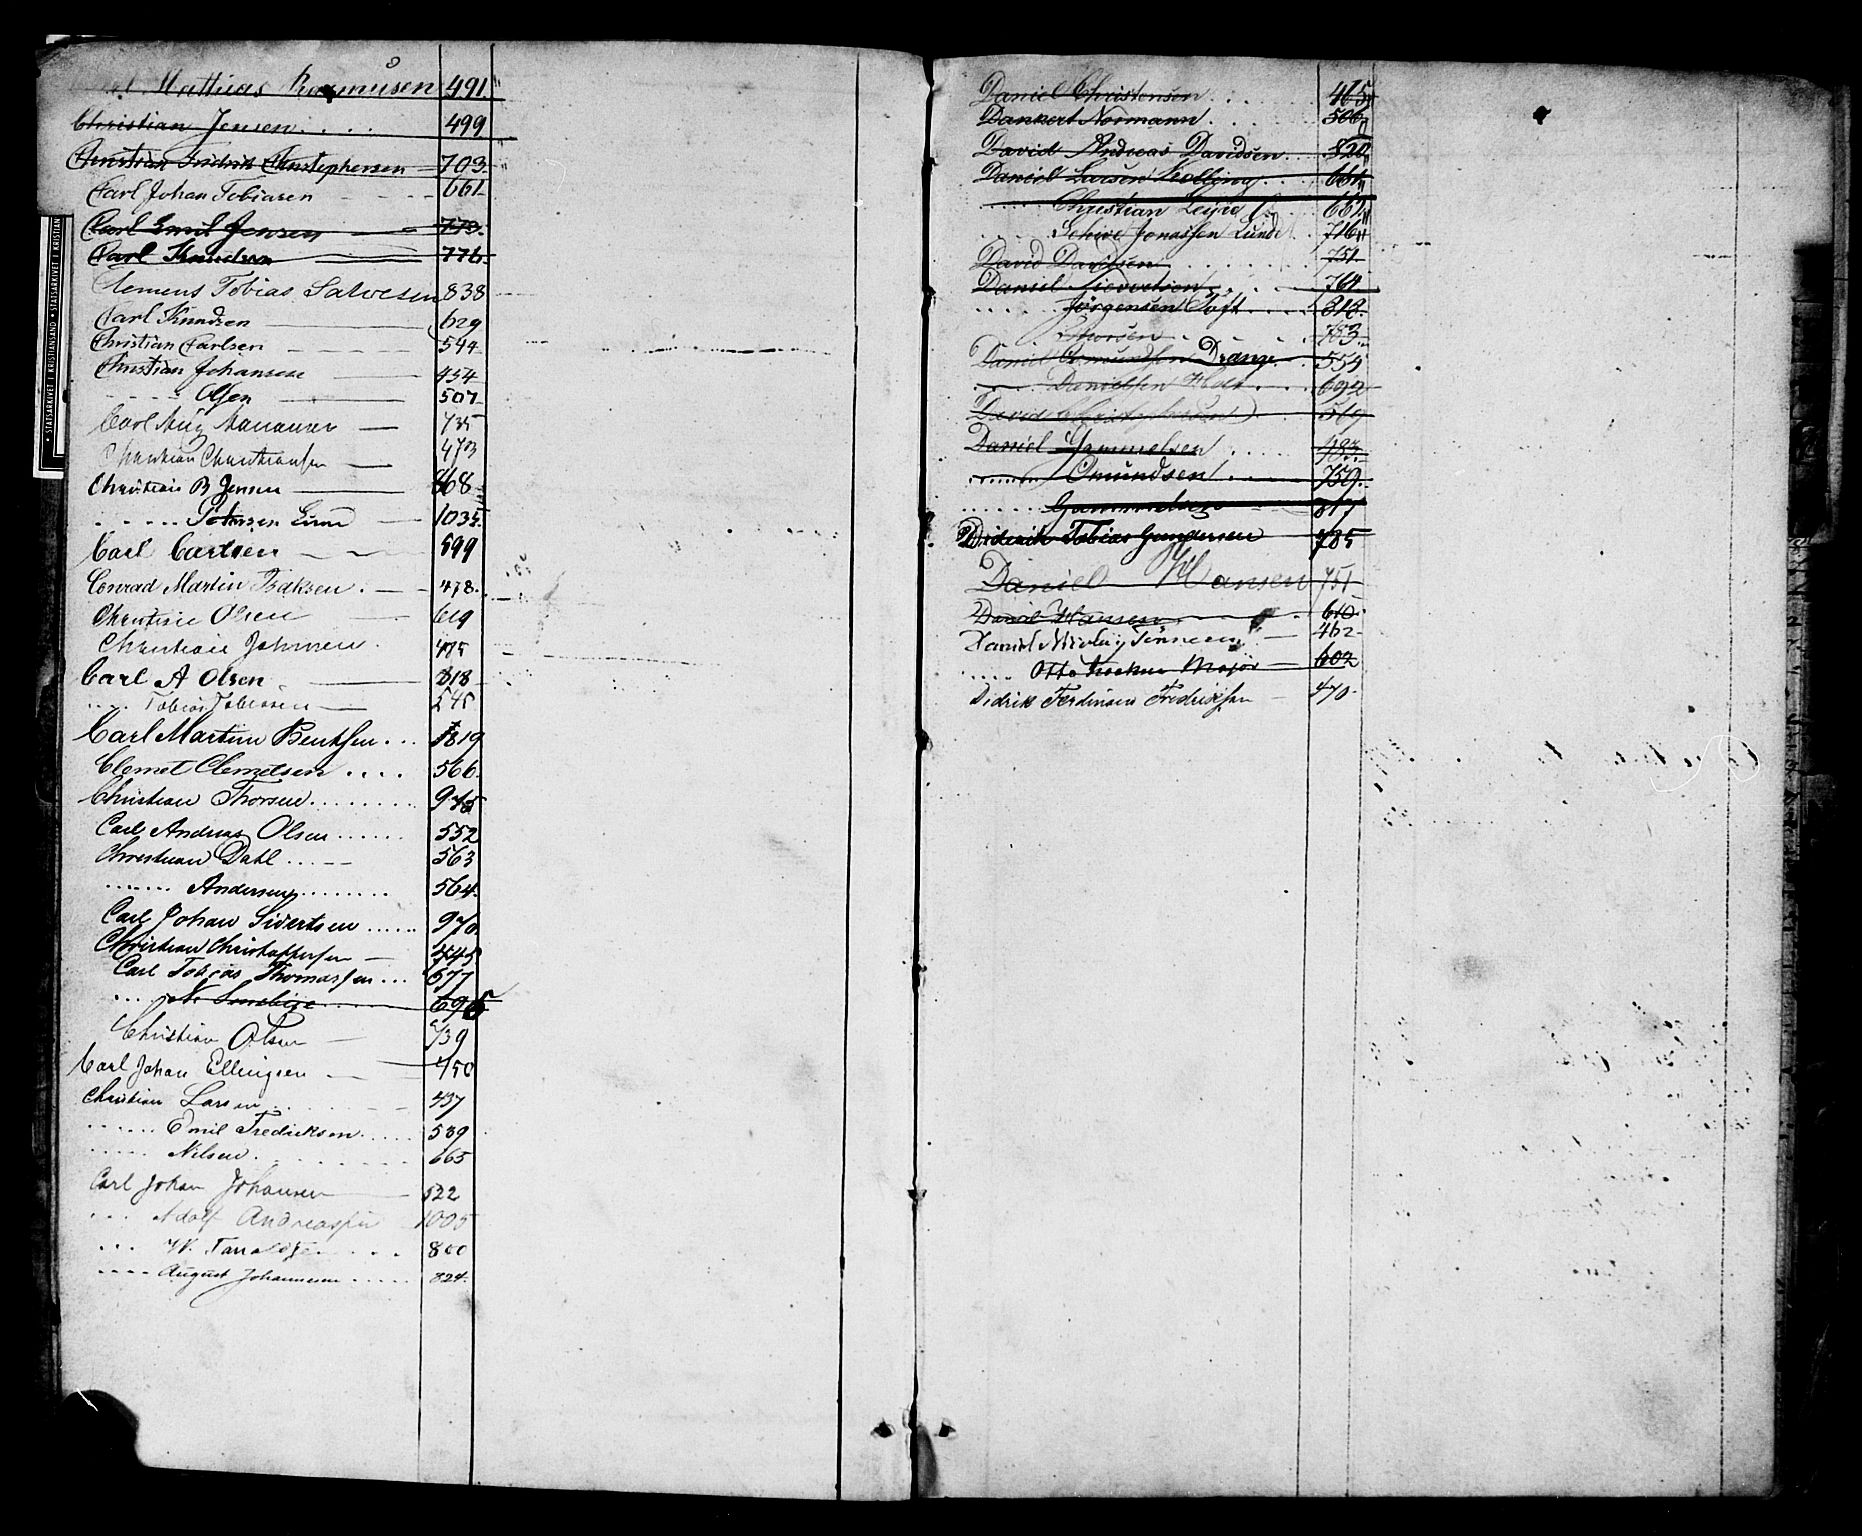 Mathias Rasmusen 491
Christian Jensen . . . . 499
Christian Fredrik Christophersen 703
Carl Johan Tobiasen - - - 661
Carl Emil Jensen 773
Carl Knudsen 776
Clemens Tobias Salvesen 838
Carl Knudsen 629
Christian Carlsen 544
Christian Johansen 454
. . . . Olsen 507
Carl Aug 735
Christian Christiansen 473
Christian B Jensen 868
. . . . . Johnsen Lund 1035
Carl Carlsen 599
Conrad Martin Isaksen 478
Christian Olsen 619
Christian Johnsen 475
Carl A Olsen 818
. . . . Tobias Tobiassen 545
Carl Martin Bentsen . . . 819
Clemet Clemetsen . . . . 566
Christian Thorsen . . . . . . . . 975
Carl Andreas Olsen . . . . . . 552
Christian Dahl . . . 563
. . . . . . . Andersen . . . . . . . . 564
Carl Johan Sivertsen . . . . . . 970
Christian Christophersen 445
Carl Tobias Thomassen . . . 677
. . . . N. 695
Christian Olsen 739
Carl Johan Ellingsen 750
Christian Larsen 437
. . . . . . Emil Fredriksen . . . . . 589
. . . . . Nilsen 665
Carl Johan Johansen 522
. . . Adolf Andreassen 1005
. . . W. . . . . 800
. . . . August Johannesen . . . . . 824
STATSARKIVET I KRISTIANSAND • STATSARKIVET I KRISTIAN
Daniel Christensen . . . . 465
Dankert Normann . . . . . 506
David Andreas Davidsen . . . 820
Daniel Larsen Kolling . . . 661
. . . . . Christian 662
. . . . Schive Jonassen Lunde . 716
David Davidsen . . . . . . 751
Daniel 764
. . . . . Jørgensen Toft . . . . 818
Thorsen 783
Daniel Omundsen Drange 559
Danielsen Holt 692
David 519
Daniel Gammelsen . . . . . 783
. . . . . Omundsen . . . . . 759
. . . . . . Gammelsen 817
Didrik Tobias Gundersen 785
Daniel Hansen 751
Daniel Hansen 610
Daniel Nicolay Tønnesen 462
. . . . . Otto Major 602
Didrik Ferdinan Fredriksen 470